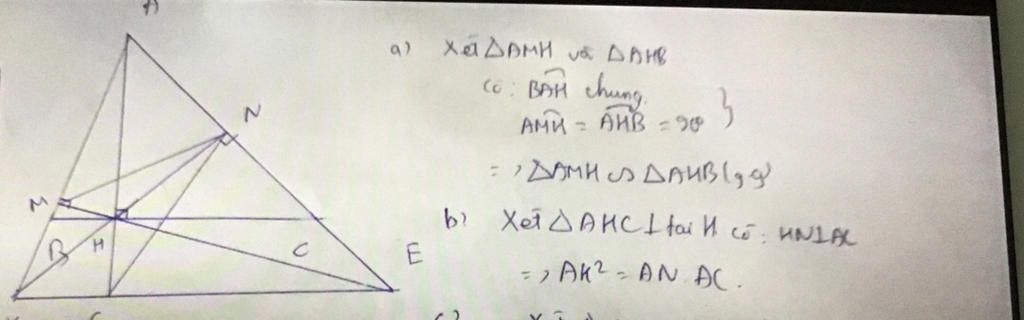 A
N
M
B
H
C
E
a) Xét △AMH và △AHB
có: BAH chung
AMH = AHB = 90
=> △AMH ∽ △AHB (g.g)
b) Xét △AHC ⊥ tại H có: HN⊥AC
=> AH² = AN.AC.
c)